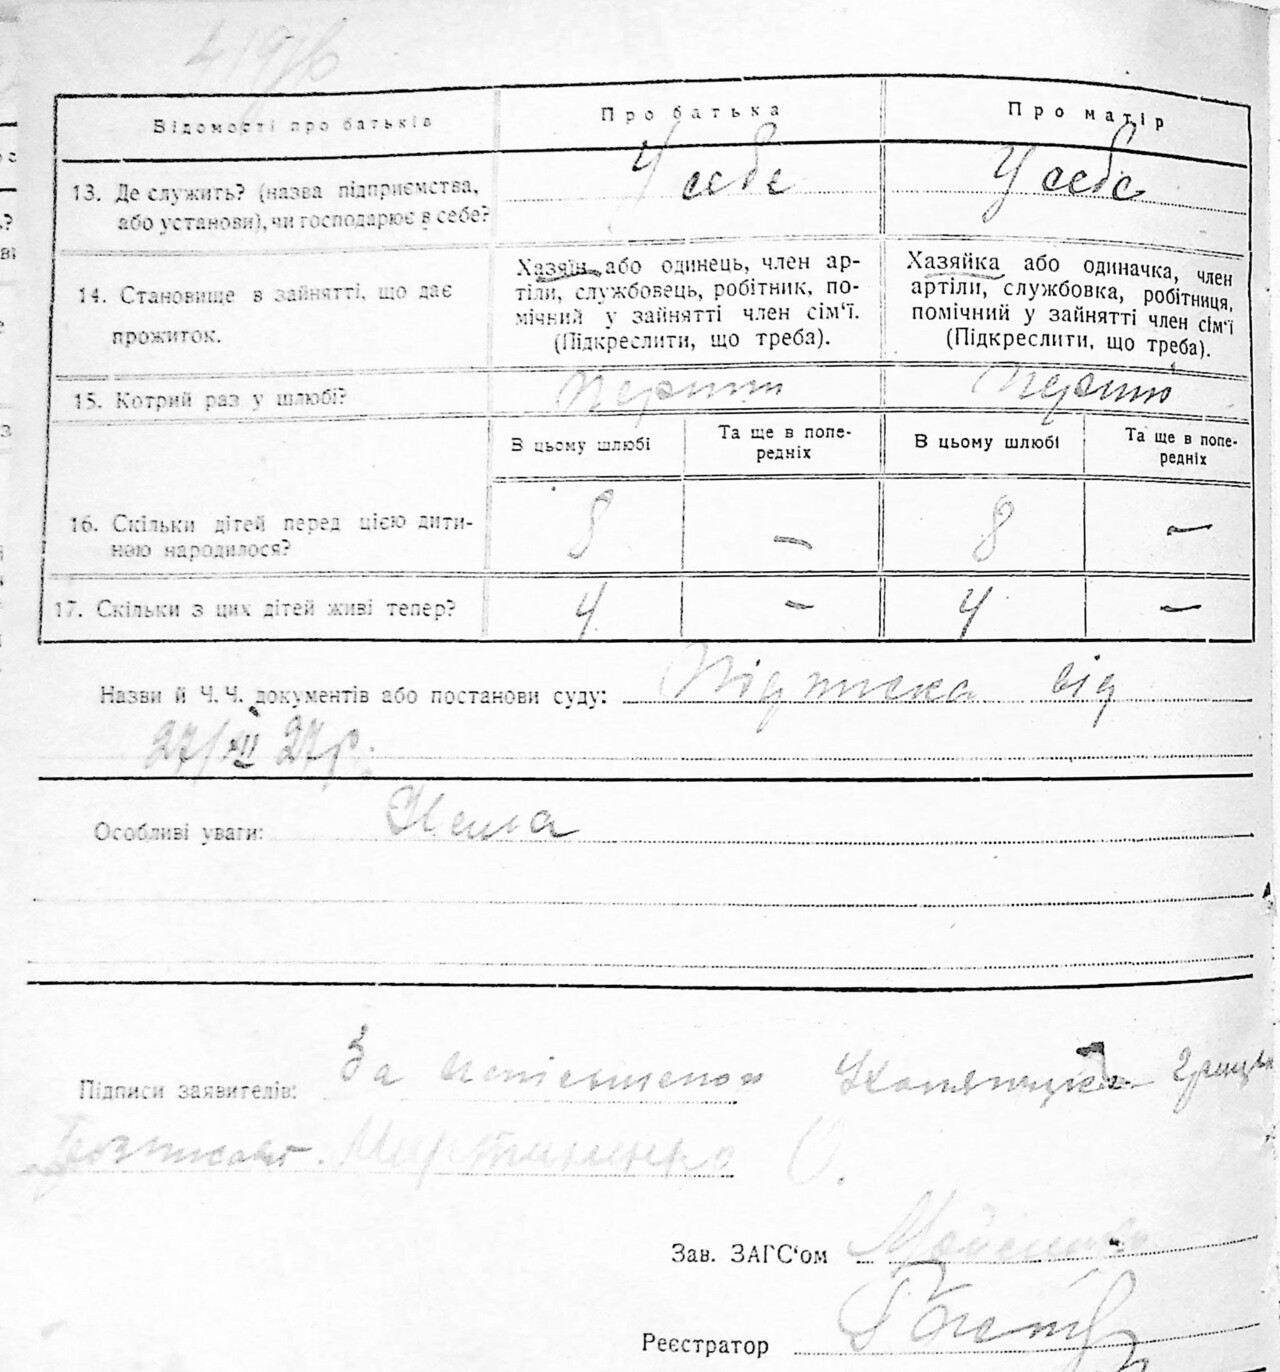 Відомості про батьків
Про батька
Про матір
13. Де служить? (назва підприємства,
або установи), чи господарює в себе?
У себе
У себе
14. Становище в зайнятті, що дає
прожиток.
Хазяїн або одинець, член ар-
тіли, службовець, робітник, по-
мічний у зайнятті член сім'ї.
(Підкреслити, що треба).
Хазяйка або одиначка, член
артіли, службовка, робітниця,
помічний у зайнятті член сім'ї
(Підкреслити, що треба).
15. Котрий раз у шлюбі?
В цьому шлюбі
Та ще в попе-
редніх
В цьому шлюбі
Та ще в попе-
редніх
16. Скільки дітей перед цією дити-
ною народилося?
8
—
8
—
17. Скільки з цих дітей живі тепер?
4
—
4
—
Назви й Ч.Ч. документів або постанови суду: Підписка від
27/XII 27р.
Особливі уваги: Нема
Підписи заявителів: За
Мартиненко
Зав. ЗАГС'ом
Реєстратор